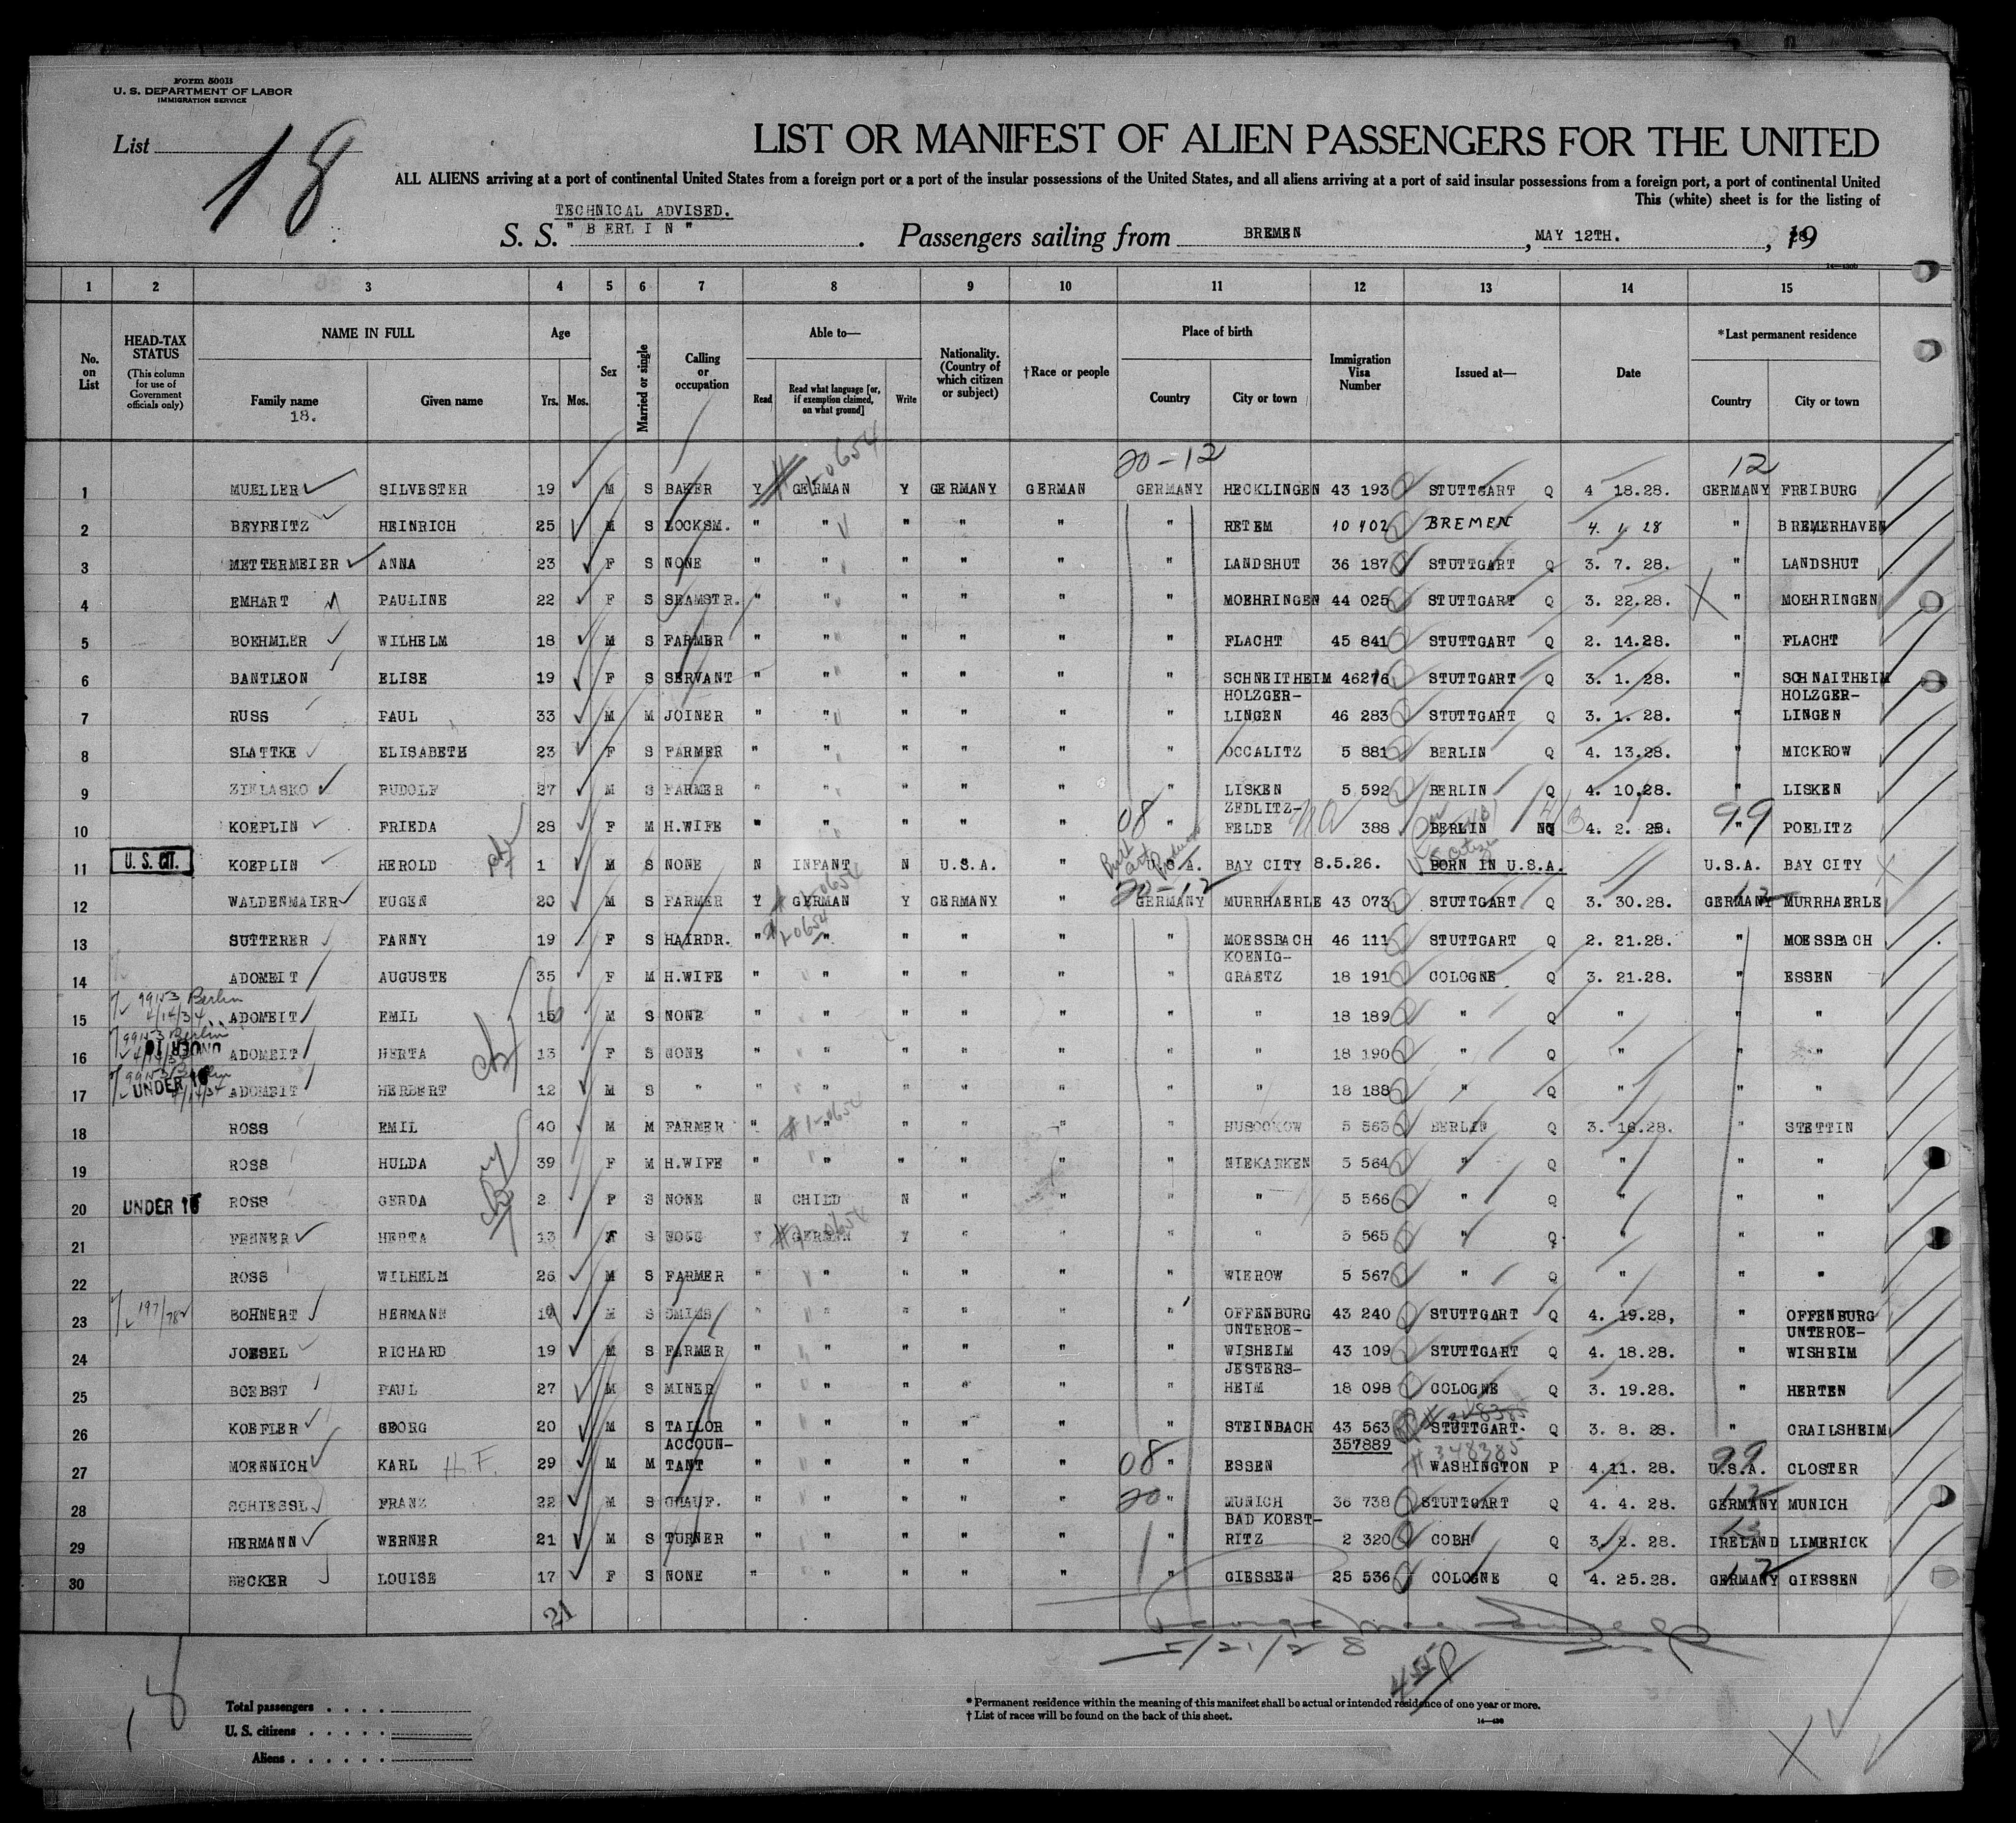 Form 500B
U. S. DEPARTMENT OF LABOR
IMMIGRATION SERVICE
List 18
LIST OR MANIFEST OF ALIEN PASSENGERS FOR THE UNITED
ALL ALIENS arriving at a port of continental United States from a foreign port or a port of the insular possessions of the United States, and all aliens arriving at a port of said insular possessions from a foreign port, a port of continental United
This (white) sheet is for the listing of
TECHNICAL ADVISED.
S. S. " BERLIN " . Passengers sailing from BREMEN , MAY 12TH. , 19 28
1 2 3 4 5 6 7 8 9 10 11 12 13 14 15
No. on List
HEAD-TAX STATUS (This column for use of Government officials only)
NAME IN FULL Family name 18. Given name
Age Yrs. Mos.
Sex
Married or single
Calling or occupation
Able to— Read Read what language [or, if exemption claimed, on what ground] Write
Nationality. (Country of which citizen or subject)
†Race or people
Place of birth Country City or town
Immigration Visa Number
Issued at—
Date
*Last permanent residence Country City or town
#1-0654 20-12 12
1 MUELLER SILVESTER 19 M S BAKER Y GERMAN Y GERMANY GERMAN GERMANY HECKLINGEN 43 193 STUTTGART Q 4 18.28. GERMANY FREIBURG
2 BEYREITZ HEINRICH 25 M S LOCKSM. " " " " " " RETEM 10 402 BREMEN 4. 1. 28 " BREMERHAVEN
3 METTERMEIER ANNA 23 F S NONE " " " " " " LANDSHUT 36 187 STUTTGART Q 3. 7. 28. " LANDSHUT
4 EMHART PAULINE 22 F S SEAMSTR. " " " " " " MOEHRINGEN 44 025 STUTTGART Q 3. 22.28. " MOEHRINGEN
5 BOEHMLER WILHELM 18 M S FARMER " " " " " " FLACHT 45 841 STUTTGART Q 2. 14.28. " FLACHT
6 BANTLEON ELISE 19 F S SERVANT " " " " " " SCHNEITHEIM 46276 STUTTGART Q 3. 1. 28. " SCHNAITHEIM
7 RUSS PAUL 33 M M JOINER " " " " " " HOLZGER-LINGEN 46 283 STUTTGART Q 3. 1. 28. " HOLZGER-LINGEN
8 SLATTKE ELISABETH 23 F S FARMER " " " " " " OCCALITZ 5 881 BERLIN Q 4. 13.28. " MICKROW
9 ZIELASKO RUDOLF 27 M S FARMER " " " " " " LISKEN 5 592 BERLIN Q 4. 10.28. " LISKEN
10 KOEPLIN FRIEDA 28 F M H.WIFE " " " " " 08 " ZEDLITZ-FELDE 388 BERLIN NQ 4. 2. 28. 99 " POELITZ
11 U. S. CIT. KOEPLIN HEROLD 1 M S NONE N INFANT N U.S.A. " U.S.A. BAY CITY 8.5.26. BORN IN U.S.A. U.S.A. BAY CITY
#1-0654 20-12 12
12 WALDENMAIER EUGEN 20 M S FARMER Y GERMAN Y GERMANY " GERMANY MURRHAERLE 43 073 STUTTGART Q 3. 30.28. GERMANY MURRHAERLE
#1-0654
13 SUTTERER FANNY 19 F S HAIRDR. " " " " " " MOESSBACH 46 111 STUTTGART Q 2. 21.28. " MOESSBACH
14 ADOMEIT AUGUSTE 35 F M H.WIFE " " " " " " KOENIG-GRAETZ 18 191 COLOGNE Q 3. 21.28. " ESSEN
99153 Berlin 4/14/34
15 ADOMEIT EMIL 16 M S NONE " " " " " " " 18 189 " Q " " "
99153 Berlin UNDER 16
16 ADOMEIT HERTA 13 F S NONE " " " " " " " 18 190 " Q " " "
99153 Berlin 4/14/34 UNDER 16
17 ADOMEIT HERBERT 12 M S " " " " " " " " 18 188 " Q " " "
#1-0654
18 ROSS EMIL 40 M M FARMER " " " " " " 5 563 BERLIN Q 3. 16.28. " STETTIN
19 ROSS HULDA 39 F M H.WIFE " " " " " " NIEKARKEN 5 564 " Q " " "
20 UNDER 16 ROSS GERDA 2 F S NONE N CHILD N " " " " 5 566 " Q " " "
#1-0654
21 FENNER HERTA 13 F S NONE Y GERMAN Y " " " " 5 565 " Q " " "
22 ROSS WILHELM 26 M S FARMER " " " " " " WIEROW 5 567 " Q " " "
23 197/782 BOHNERT HERMANN 19 M S SMITH " " " " " " OFFENBURG 43 240 STUTTGART Q 4. 19.28, " OFFENBURG
24 JOESEL RICHARD 19 M S FARMER " " " " " " UNTEROE-WISHEIM 43 109 STUTTGART Q 4. 18.28. " UNTEROE-WISHEIM
25 BOEBST PAUL 27 M S MINER " " " " " " JESTERS-HEIM 18 098 COLOGNE Q 3. 19.28. " HERTEN
26 KOEFLER GEORG 20 M S TAILOR " " " " " " STEINBACH 43 563 STUTTGART. Q 3. 8. 28. " CRAILSHEIM
27 MOENNICH KARL H.F. 29 M M ACCOUN-TANT " " " " " 08 " ESSEN 357889 # 348385 WASHINGTON P 4.11. 28. 99 U.S.A. CLOSTER
28 SCHIESSL FRANZ 22 M S CHAUF. " " " " " 20 " MUNICH 36 738 STUTTGART Q 4. 4. 28. 12 GERMANY MUNICH
29 HERMANN WERNER 21 M S TURNER " " " " " " BAD KOEST-RITZ 2 320 COBH Q 3. 2. 28. 13 IRELAND LIMERICK
30 BECKER LOUISE 17 F S NONE " " " " " " GIESSEN 25 536 COLOGNE Q 4. 25.28. 12 GERMANY GIESSEN
21
5/21/28
455 P
18
Total passengers . . . .
U. S. citizens . . . . .
Aliens . . . . . .
* Permanent residence within the meaning of this manifest shall be actual or intended residence of one year or more.
† List of races will be found on the back of this sheet.